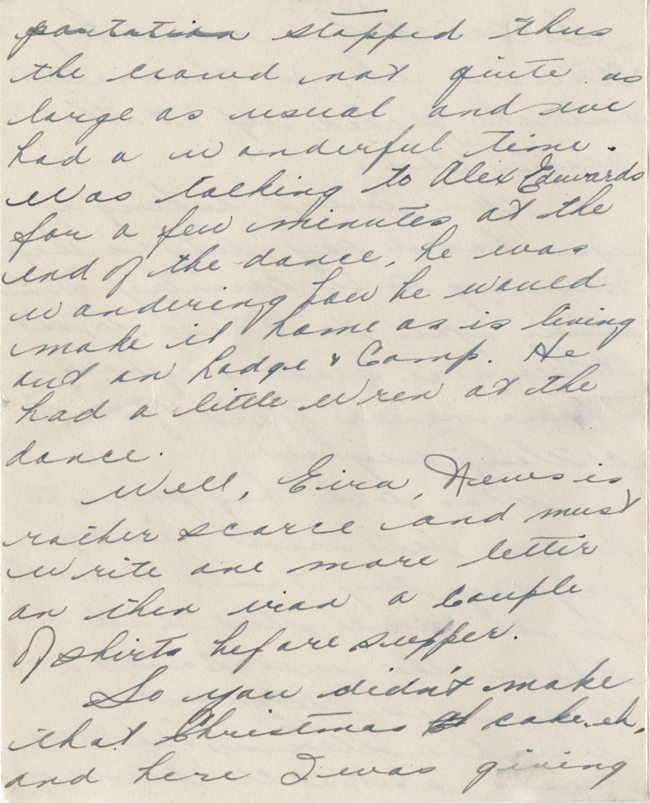 portation stopped thus
the crowd not quite as
large as usual and we
had a wonderful time.
Was talking to Alex Edwards
for a few minutes at the
end of the dance, he was
wandering how he would
make it home as is living
out on Lodge & Comp. He
had a little Wren at the
dance.
Well, Eira, News is
rather scarce and must
write one more letter
an then iron a couple
of shirts before supper.
So you didn't make
that Christmas cake eh,
and here I was giving